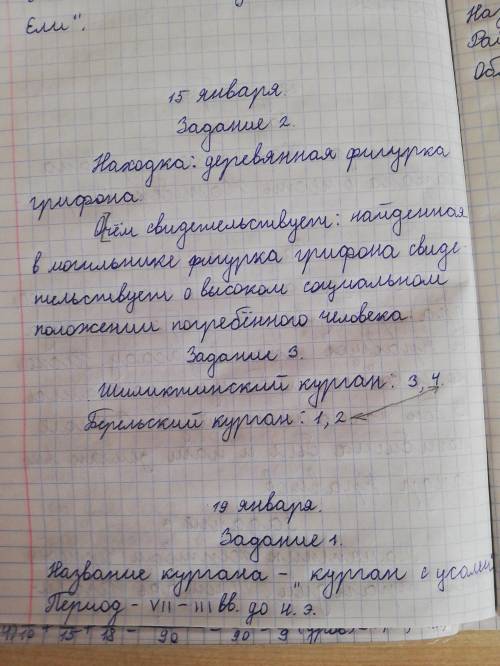 Ели".
15 января.
Задание 2.
Находка: деревянная фигурка
грифона.
О чём свидетельствует: найденная
в могильнике фигурка грифона свиде-
тельствует о высоком социальном
положении погребённого человека.
Задание 3.
Шиликтинский курган: 3, 4.
Берельский курган: 1, 2
19 января.
Задание 1.
Название кургана - "курган с усами
Период - VII - III вв. до н. э.
На
Об